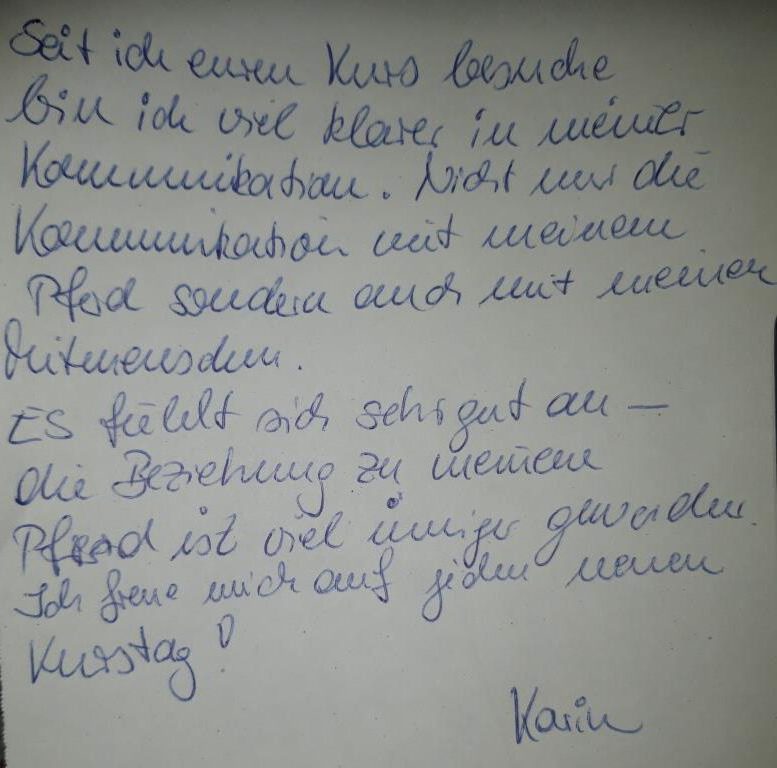 Seit ich euren Kurs besuche
bin ich viel klarer in meiner
Kommunikation. Nicht nur die
Kommunikation mit meinem
Pferd sondern auch mit meinen
Mitmenschen.
Es fühlt sich sehr gut an —
die Beziehung zu meinem
Pferd ist viel inniger geworden.
Ich freue mich auf jeden neuen
Kurstag!
Karin